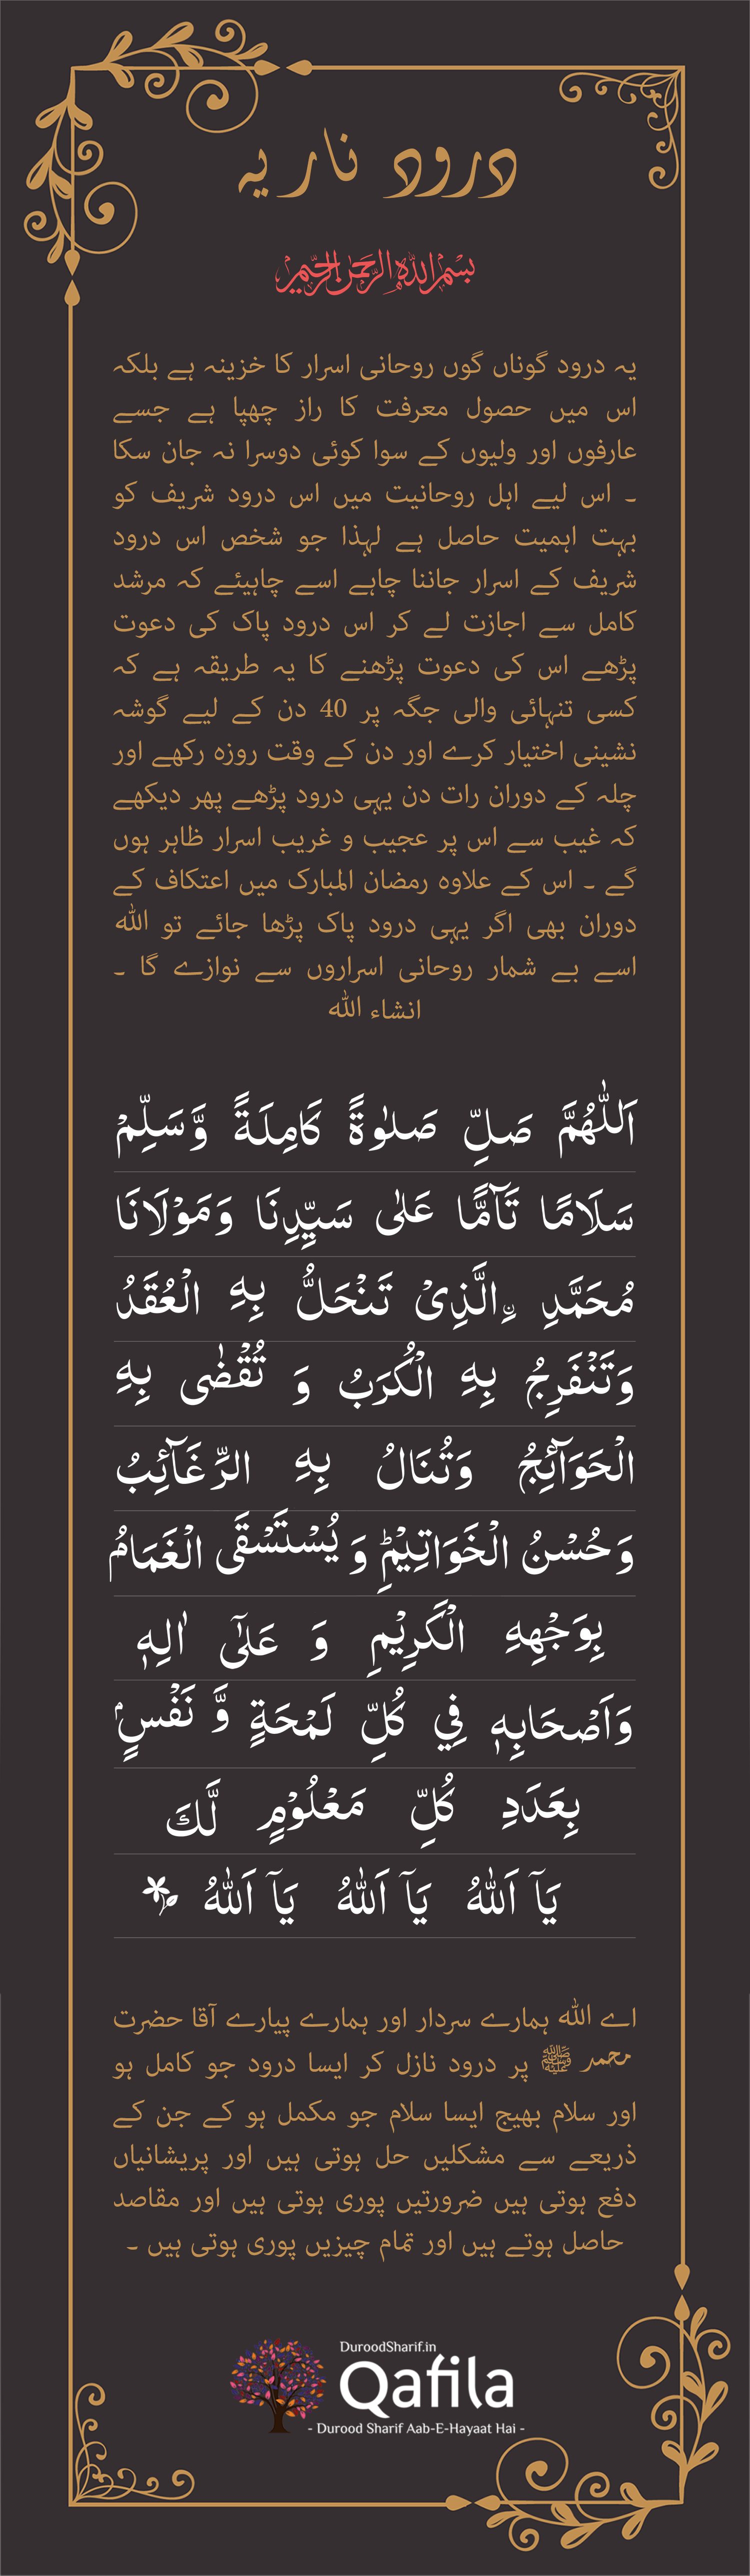 درود ناریہ
بسم اللہ الرحمن الرحیم
یہ درود گوناں گوں روحانی اسرار کا خزینہ ہے بلکہ
اس میں حصول معرفت کا راز چھپا ہے جسے
عارفوں اور ولیوں کے سوا کوئی دوسرا نہ جان سکا
۔ اس لیے اہل روحانیت میں اس درود شریف کو
بہت اہمیت حاصل ہے لہذا جو شخص اس درود
شریف کے اسرار جاننا چاہے اسے چاہیئے کہ مرشد
کامل سے اجازت لے کر اس درود پاک کی دعوت
پڑھے اس کی دعوت پڑھنے کا یہ طریقہ ہے کہ
کسی تنہائی والی جگہ پر 40 دن کے لیے گوشہ
نشینی اختیار کرے اور دن کے وقت روزہ رکھے اور
چلہ کے دوران رات دن یہی درود پڑھے پھر دیکھے
کہ غیب سے اس پر عجیب و غریب اسرار ظاہر ہوں
گے ۔ اس کے علاوہ رمضان المبارک میں اعتکاف کے
دوران بھی اگر یہی درود پاک پڑھا جائے تو اللہ
اسے بے شمار روحانی اسراروں سے نوازے گا ۔
انشاء اللہ
اَللّٰهُمَّ صَلِّ صَلٰوةً كَامِلَةً وَّسَلِّمْ
سَلَامًا تَآمًّا عَلٰى سَيِّدِنَا وَمَوْلَانَا
مُحَمَّدِ نِ۟الَّذِىْ تَنْحَلُّ بِهِ الْعُقَدُ
وَتَنْفَرِجُ بِهِ الْكُرَبُ وَ تُقْضٰى بِهِ
الْحَوَآئِجُ وَتُنَالُ بِهِ الرَّغَآئِبُ
وَحُسْنُ الْخَوَاتِيْمِؕ وَ يُسْتَسْقَى الْغَمَامُ
بِوَجْهِهِ الْكَرِيْمِ وَ عَلٰٓى اٰلِهٖ
وَاَصْحَابِهٖ فِي كُلِّ لَمْحَةٍ وَّ نَفْسٍۢ
بِعَدَدِ كُلِّ مَعْلُوْمٍ لَّكَ
يَآ اَللّٰهُ يَآ اَللّٰهُ يَآ اَللّٰهُ
اے اللہ ہمارے سردار اور ہمارے پیارے آقا حضرت
محمد ﷺ پر درود نازل کر ایسا درود جو کامل ہو
اور سلام بھیج ایسا سلام جو مکمل ہو کے جن کے
ذریعے سے مشکلیں حل ہوتی ہیں اور پریشانیاں
دفع ہوتی ہیں ضرورتیں پوری ہوتی ہیں اور مقاصد
حاصل ہوتے ہیں اور تمام چیزیں پوری ہوتی ہیں ۔
DuroodSharif.in
Qafila
- Durood Sharif Aab-E-Hayaat Hai -